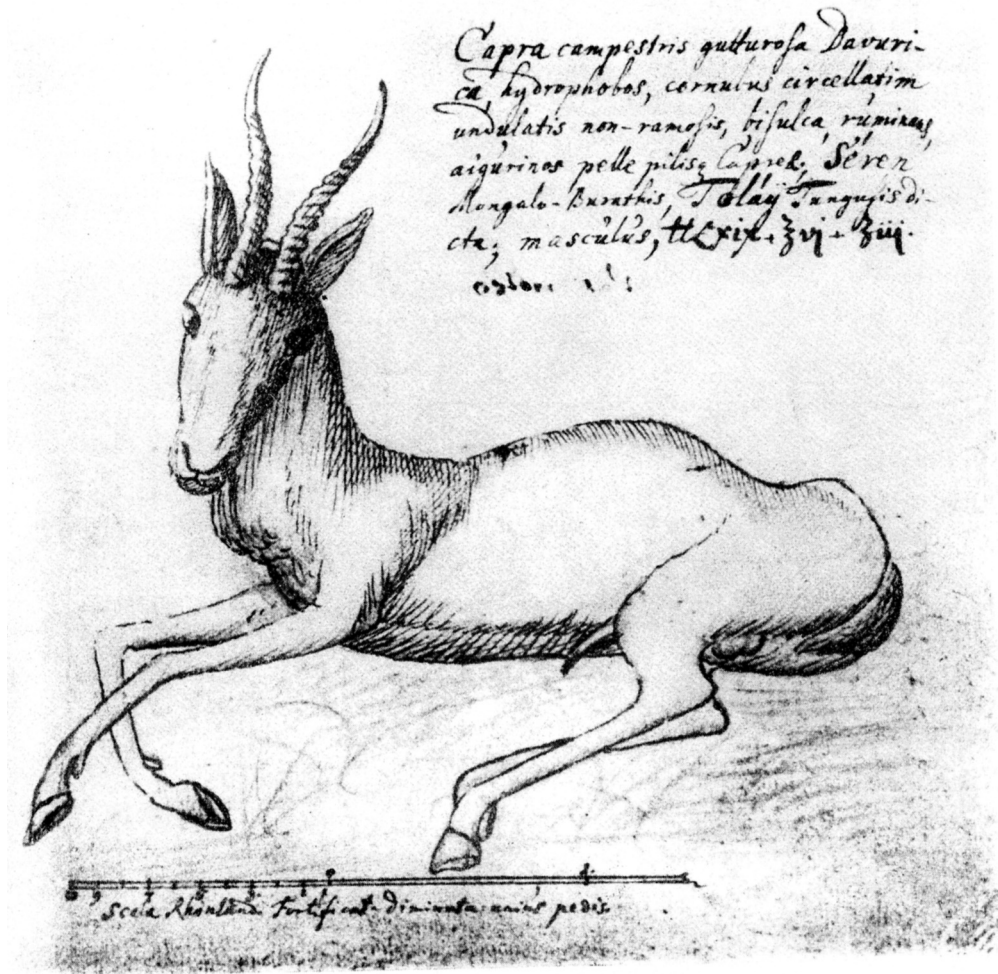 Capra campestris gutturosa Davuri-
ca, hydrophobos, cornubus circellatim
undulatis non-ramosis, bisulca, ruminans,
pelle pilisq Capreæ; Séren
Mongalo-Burathis, Toláÿ Tungusis di-
cta; masculus,
Scala Rhenland. Fortificat. diminuta unius pedis.